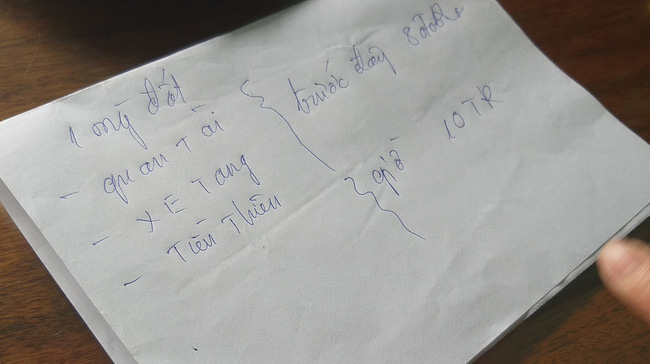 1 mộ đất
- quan Tài
- XE Tang
- Tiền Thiêu
trước đây 8
giờ 10TR